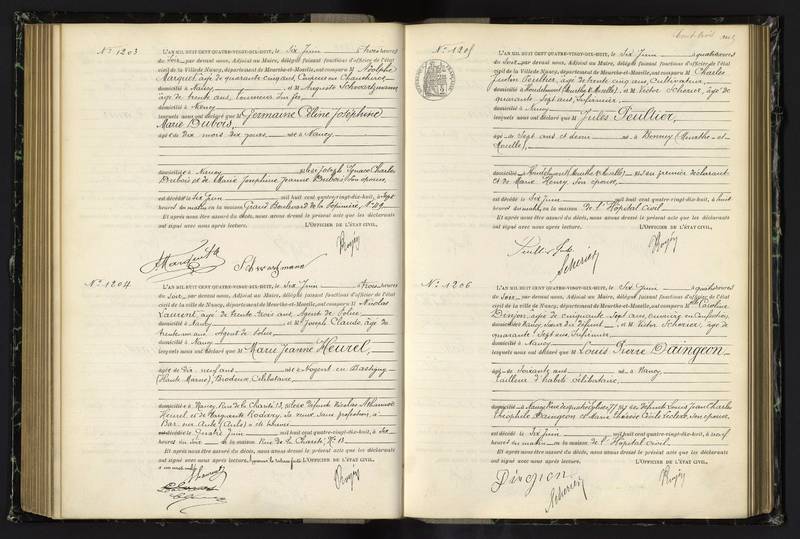 N° 1203
L'AN MIL HUIT CENT QUATRE-VINGT-DIX-HUIT, le Six Juin à trois heures
du Soir, par devant nous, Adjoint au Maire, délégué faisant fonctions d'officier de l'état
civil de la Ville de Nancy, département de Meurthe-et-Moselle, ont comparu M Adolphe
Marquet, âgé de quarante cinq ans, Coupeur en Chaussures,
domicilié à Nancy et M Auguste Schwartzmann,
âgé de trente ans, tourneur sur fer,
domicilié à Nancy
lesquels nous ont déclaré que Germaine Céline Joséphine
Marie Dubois,
âgée de Dix mois dix jours née à Nancy,
domiciliée à Nancy, fille de Joseph Ignace Charles
Dubois et de Marie Joséphine Jeanne Dubois son épouse,
est décédée le Six Juin mil huit cent quatre-vingt-dix-huit, à sept
heures du matin en la maison Grand Boulevard de la Pépinière, N° 49
Et après nous être assuré du décès, nous avons dressé le présent acte que les déclarants
ont signé avec nous après lecture. L'OFFICIER DE L'ÉTAT CIVIL,
Schwartzmann
N° 1204
L'AN MIL HUIT CENT QUATRE-VINGT-DIX-HUIT, le Six Juin à trois heures
du Soir, par devant nous, Adjoint au Maire, délégué faisant fonctions d'officier de l'état
civil de la ville de Nancy, département de Meurthe-et-Moselle, ont comparu M Nicolas
Laurent, âgé de trente trois ans, Agent de Police
domicilié à Nancy et M Joseph Claude, âgé de
trente un ans, Agent de Police,
domicilié à Nancy
lesquels nous ont déclaré que Marie Jeanne Heurel,
âgée de Dix neuf ans née à Nogent en Bassigny
(Haute Marne), Brodeuse, Célibataire
domiciliée à Nancy, Rue de la Charité 13, fille de défunt Nicolas
Heurel et de Marguerite
Bar sur Aube (Aube)
est décédée le Quatre Juin mil huit cent quatre-vingt-dix-huit, à six
heures du Soir en la maison Rue de la Charité, N° 13
Et après nous être assuré du décès, nous avons dressé le présent acte que les déclarants
ont signé avec nous après lecture. L'OFFICIER DE L'ÉTAT CIVIL,
N° 1205
L'AN MIL HUIT CENT QUATRE-VINGT-DIX-HUIT, le Six Juin à quatre heures
du Soir, par devant nous, Adjoint au Maire, délégué faisant fonctions d'officier de l'état
civil de la Ville de Nancy, département de Meurthe-et-Moselle, ont comparu M Charles
Justin Peultier, âgé de trente cinq ans, Cultivateur,
domicilié à Houdelmont (Meurthe & Moselle) et M Victor Scherier, âgé de
quarante Sept ans, Infirmier,
domicilié à Nancy
lesquels nous ont déclaré que Jules Peultier,
âgé de Sept ans et demi né à Benney (Meurthe-et-
Moselle),
domicilié à Houdelmont (Meurthe & Moselle) fils du premier déclarant
et de Marie Henry son épouse,
est décédé le Six Juin mil huit cent quatre-vingt-dix-huit, à huit
heures du matin, en la maison de l'Hôpital Civil
Et après nous être assuré du décès, nous avons dressé le présent acte que les déclarants
ont signé avec nous après lecture. L'OFFICIER DE L'ÉTAT CIVIL,
Scherier
N° 1206
L'AN MIL HUIT CENT QUATRE-VINGT-DIX-HUIT, le Six Juin à quatre heures
du Soir, par devant nous, Adjoint au Maire, délégué faisant fonctions d'officier de l'état
civil de la Ville de Nancy, département de Meurthe-et-Moselle, ont comparu M Caroline
âgée de cinquante Sept ans, ouvrière en Confections,
domiciliée à Nancy, et M Victor Scherier, âgé de
quarante Sept ans, Infirmier
domicilié à Nancy
lesquels nous ont déclaré que Louis Pierre Daingeon
âgé de Soixante ans né à Nancy,
tailleur d'habits, célibataire,
domicilié à Nancy, Rue des quatre Eglises, 77 fils de défunts Louis Jean Charles
Théophile Daingeon et Marie son épouse,
est décédé le Six Juin mil huit cent quatre-vingt-dix-huit, à neuf
heures du matin en la maison de l'Hôpital Civil.
Et après nous être assuré du décès, nous avons dressé le présent acte que les déclarants
ont signé avec nous après lecture. L'OFFICIER DE L'ÉTAT CIVIL,
Scherier